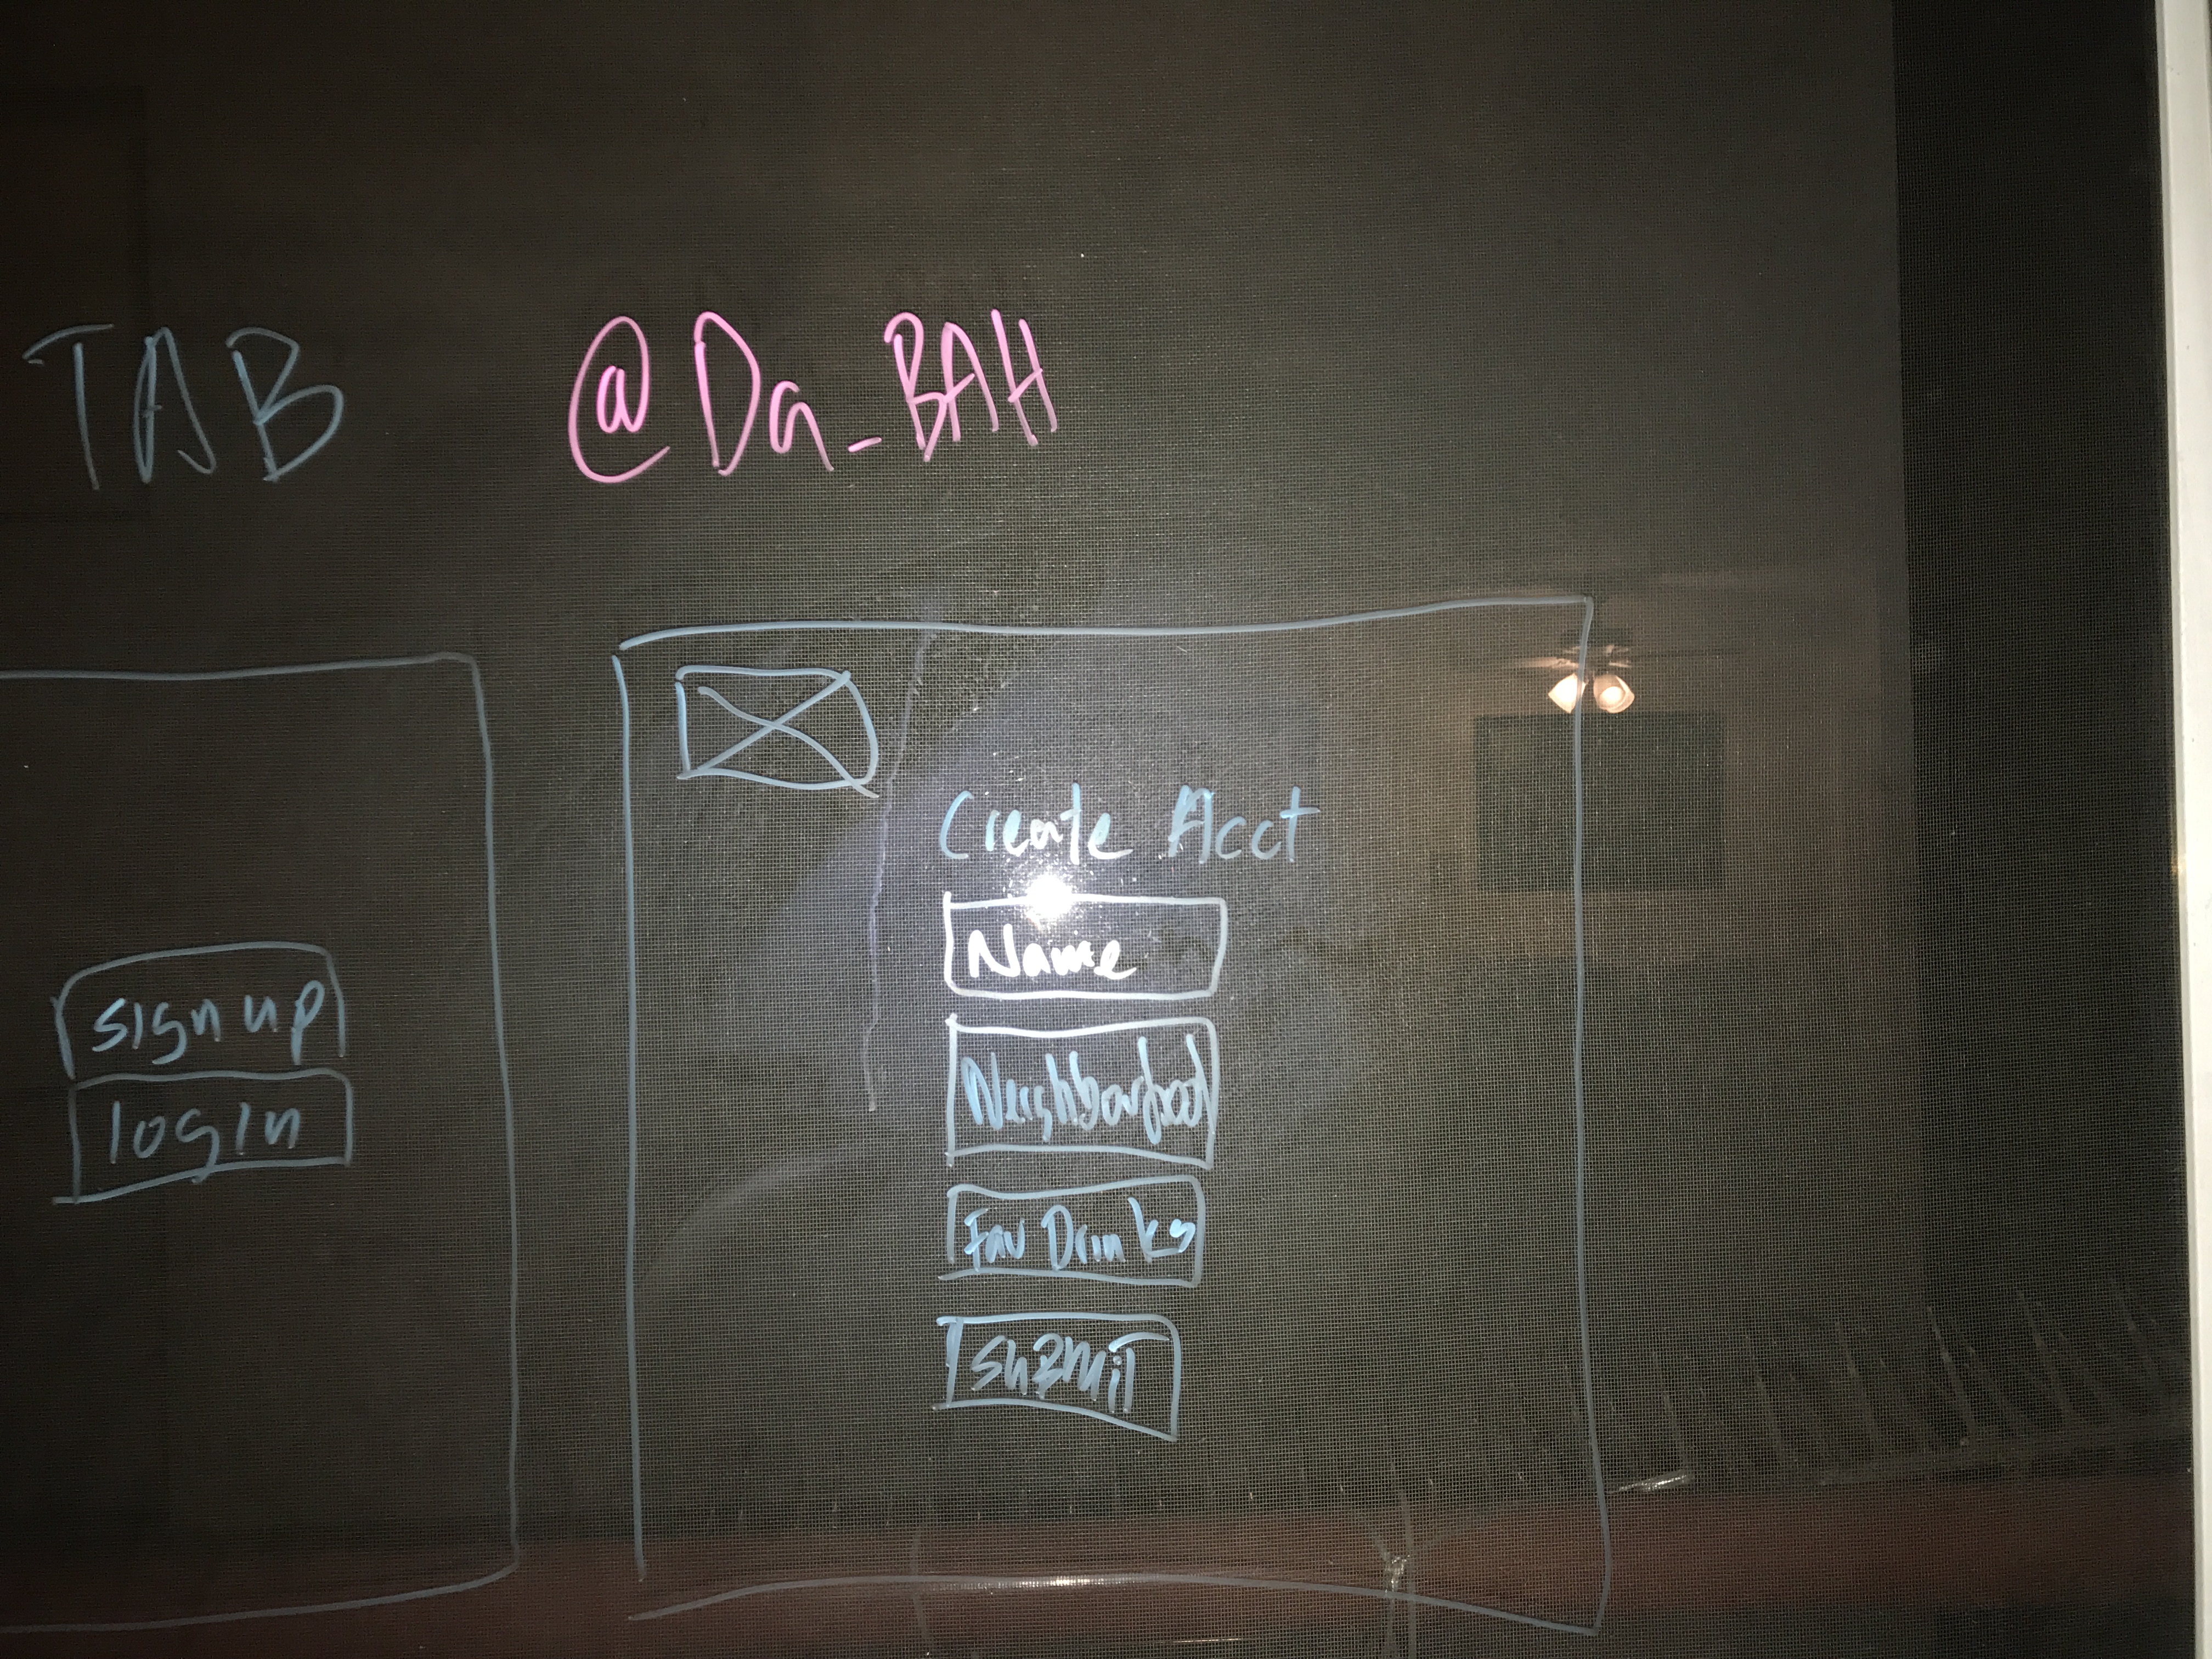 TAB @Da_BAH
sign up
login
Create Acct
Name
Neighborhood
Fav Drinks
SuBMiT